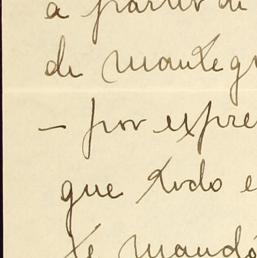 a partir de
de manteg
— por expre
que todo e
te mandó